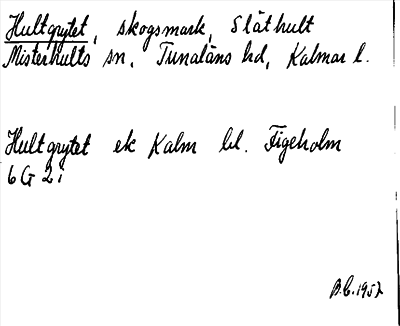 Hultgrytet, skogsmark, Slåthult
Misterhults sn, Tunaläns hd, Kalmar l.
Hultgrytet ek Kalm bl. Figeholm
6 G 2 i
B.C. 1957